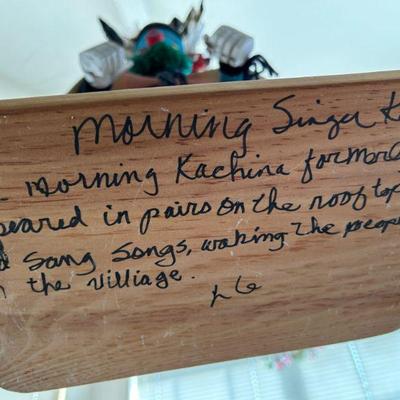 Morning Singer K
morning Kachina formerl
peared in pairs on the rooftop
Sang Songs, waking the peop
the villiage.
LG